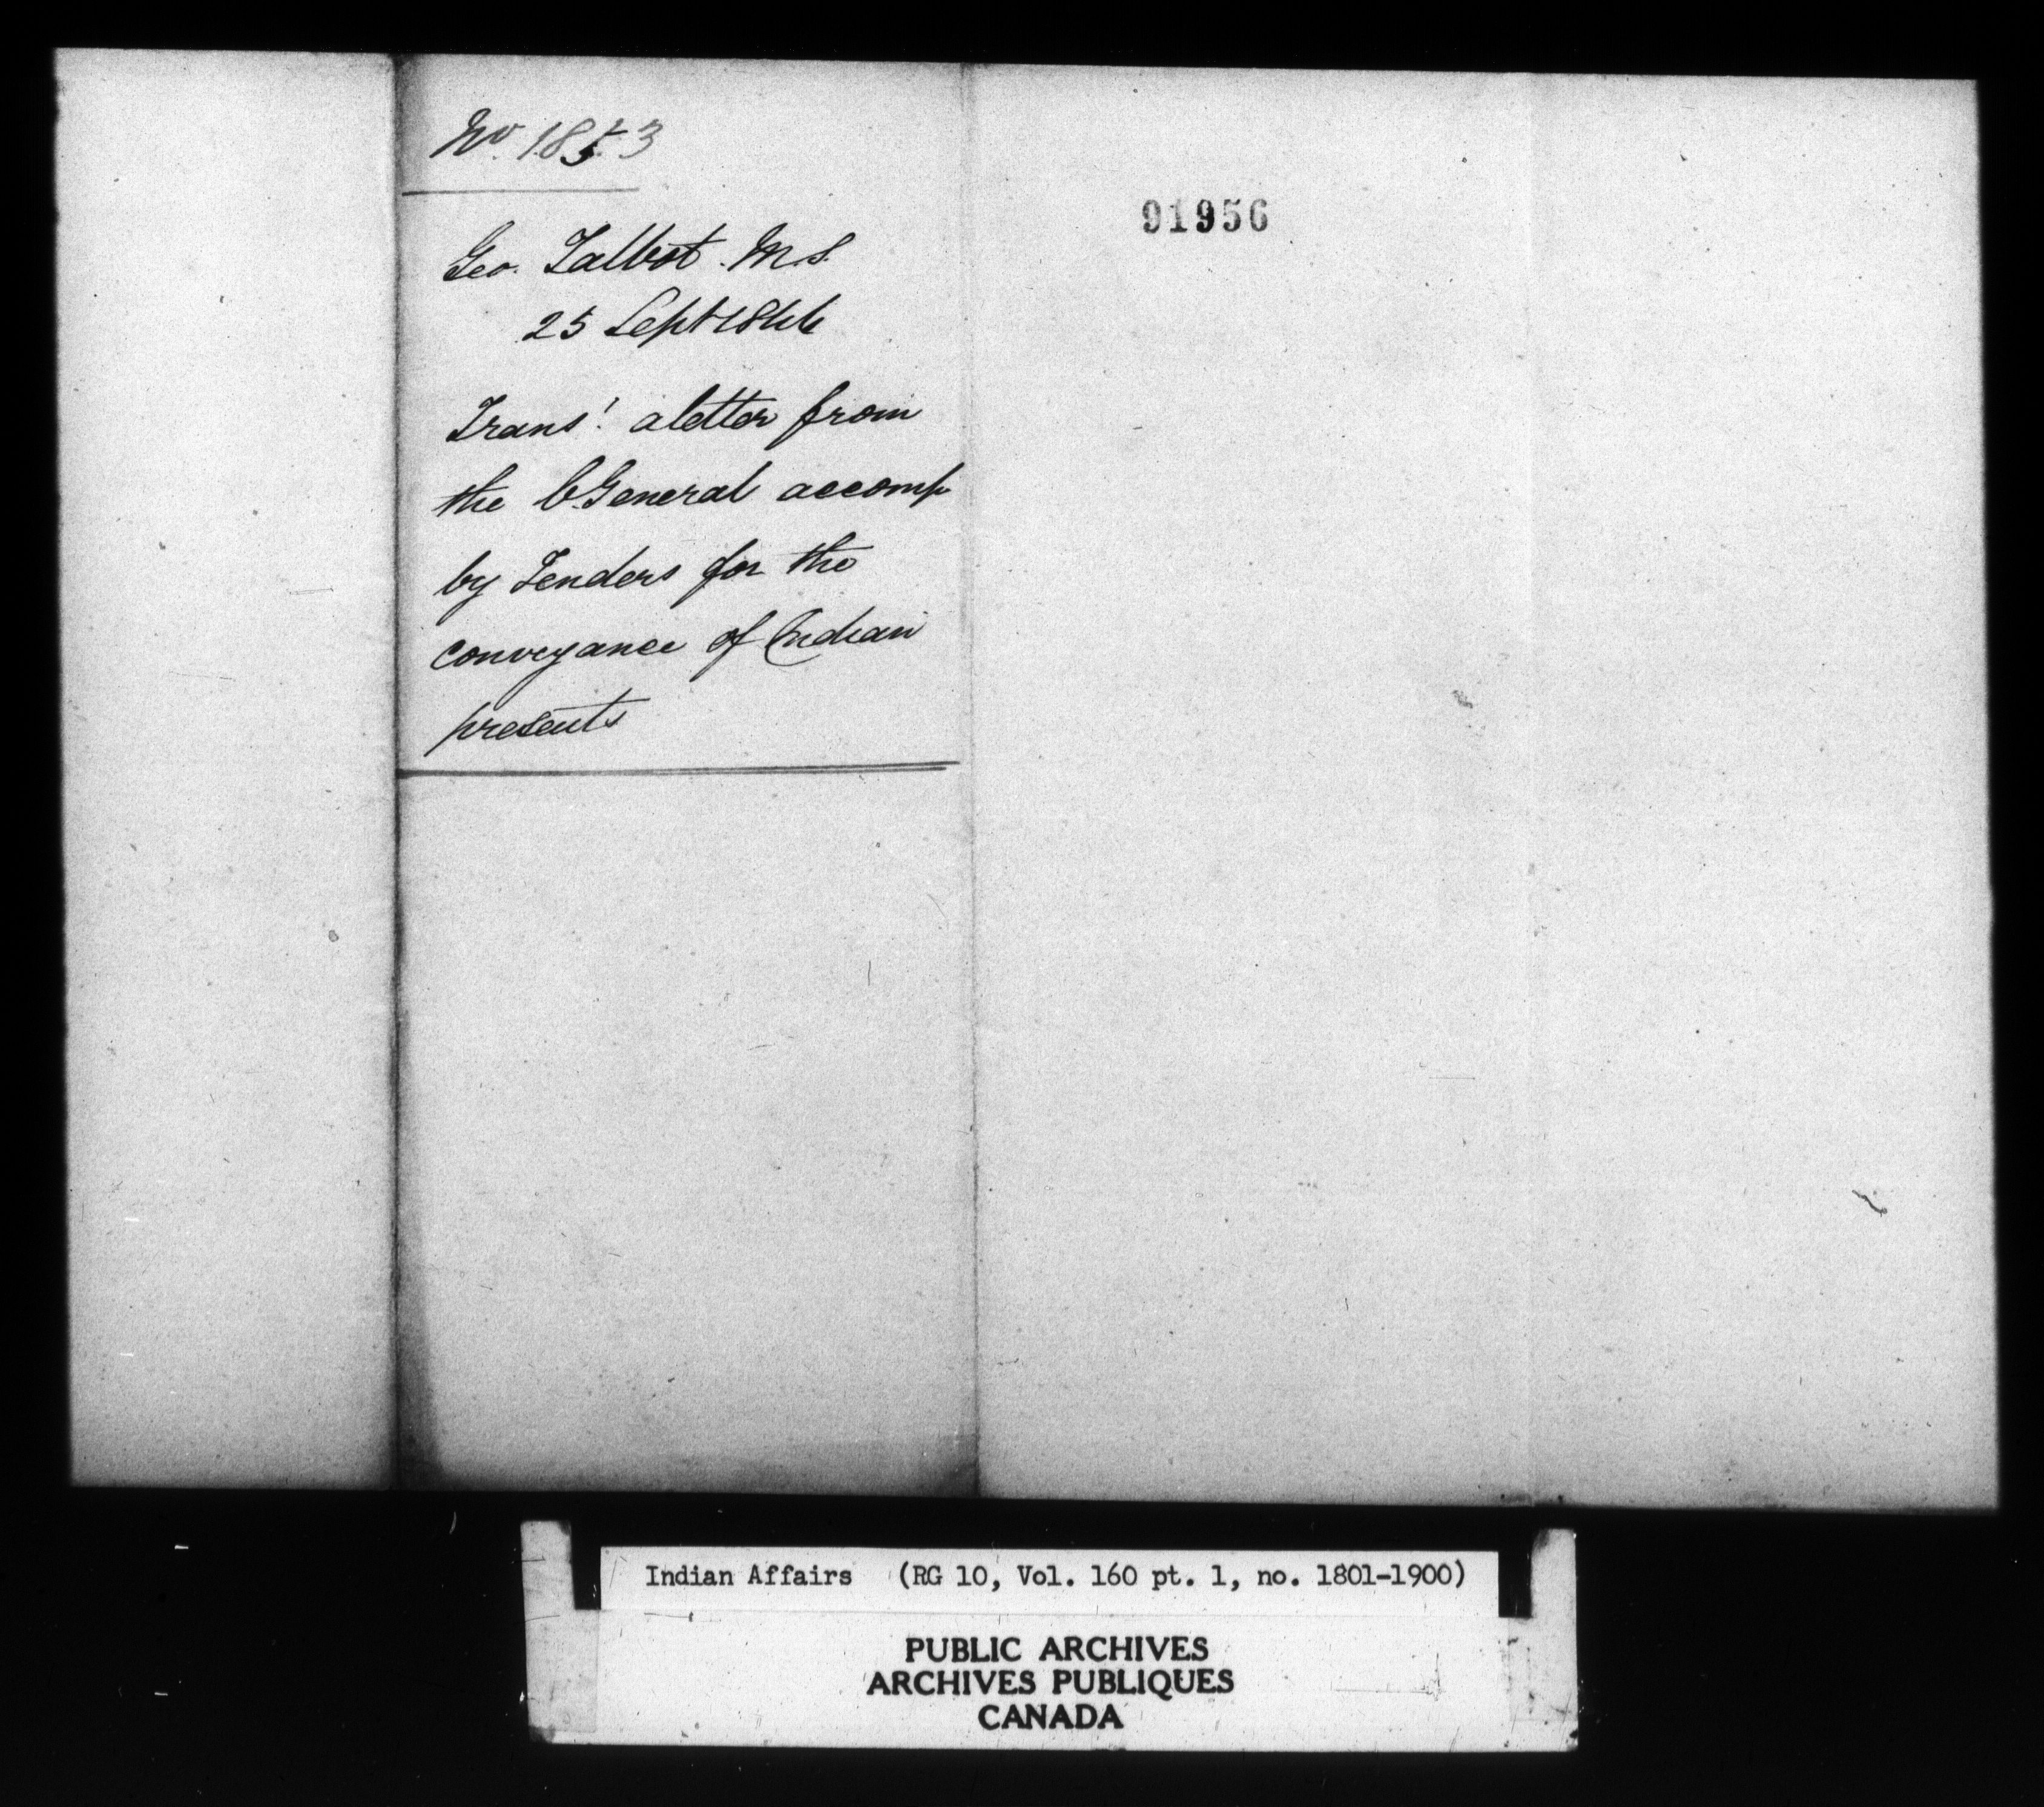 No. 1853
Geo. Talbot. M.S.
25 Sept 1846
Trans! a letter from
the C. General accomp
by Tenders for the
conveyance of Indian
presents
91956
Indian Affairs (RG 10, Vol. 160 pt. 1, no. 1801-1900)
PUBLIC ARCHIVES
ARCHIVES PUBLIQUES
CANADA